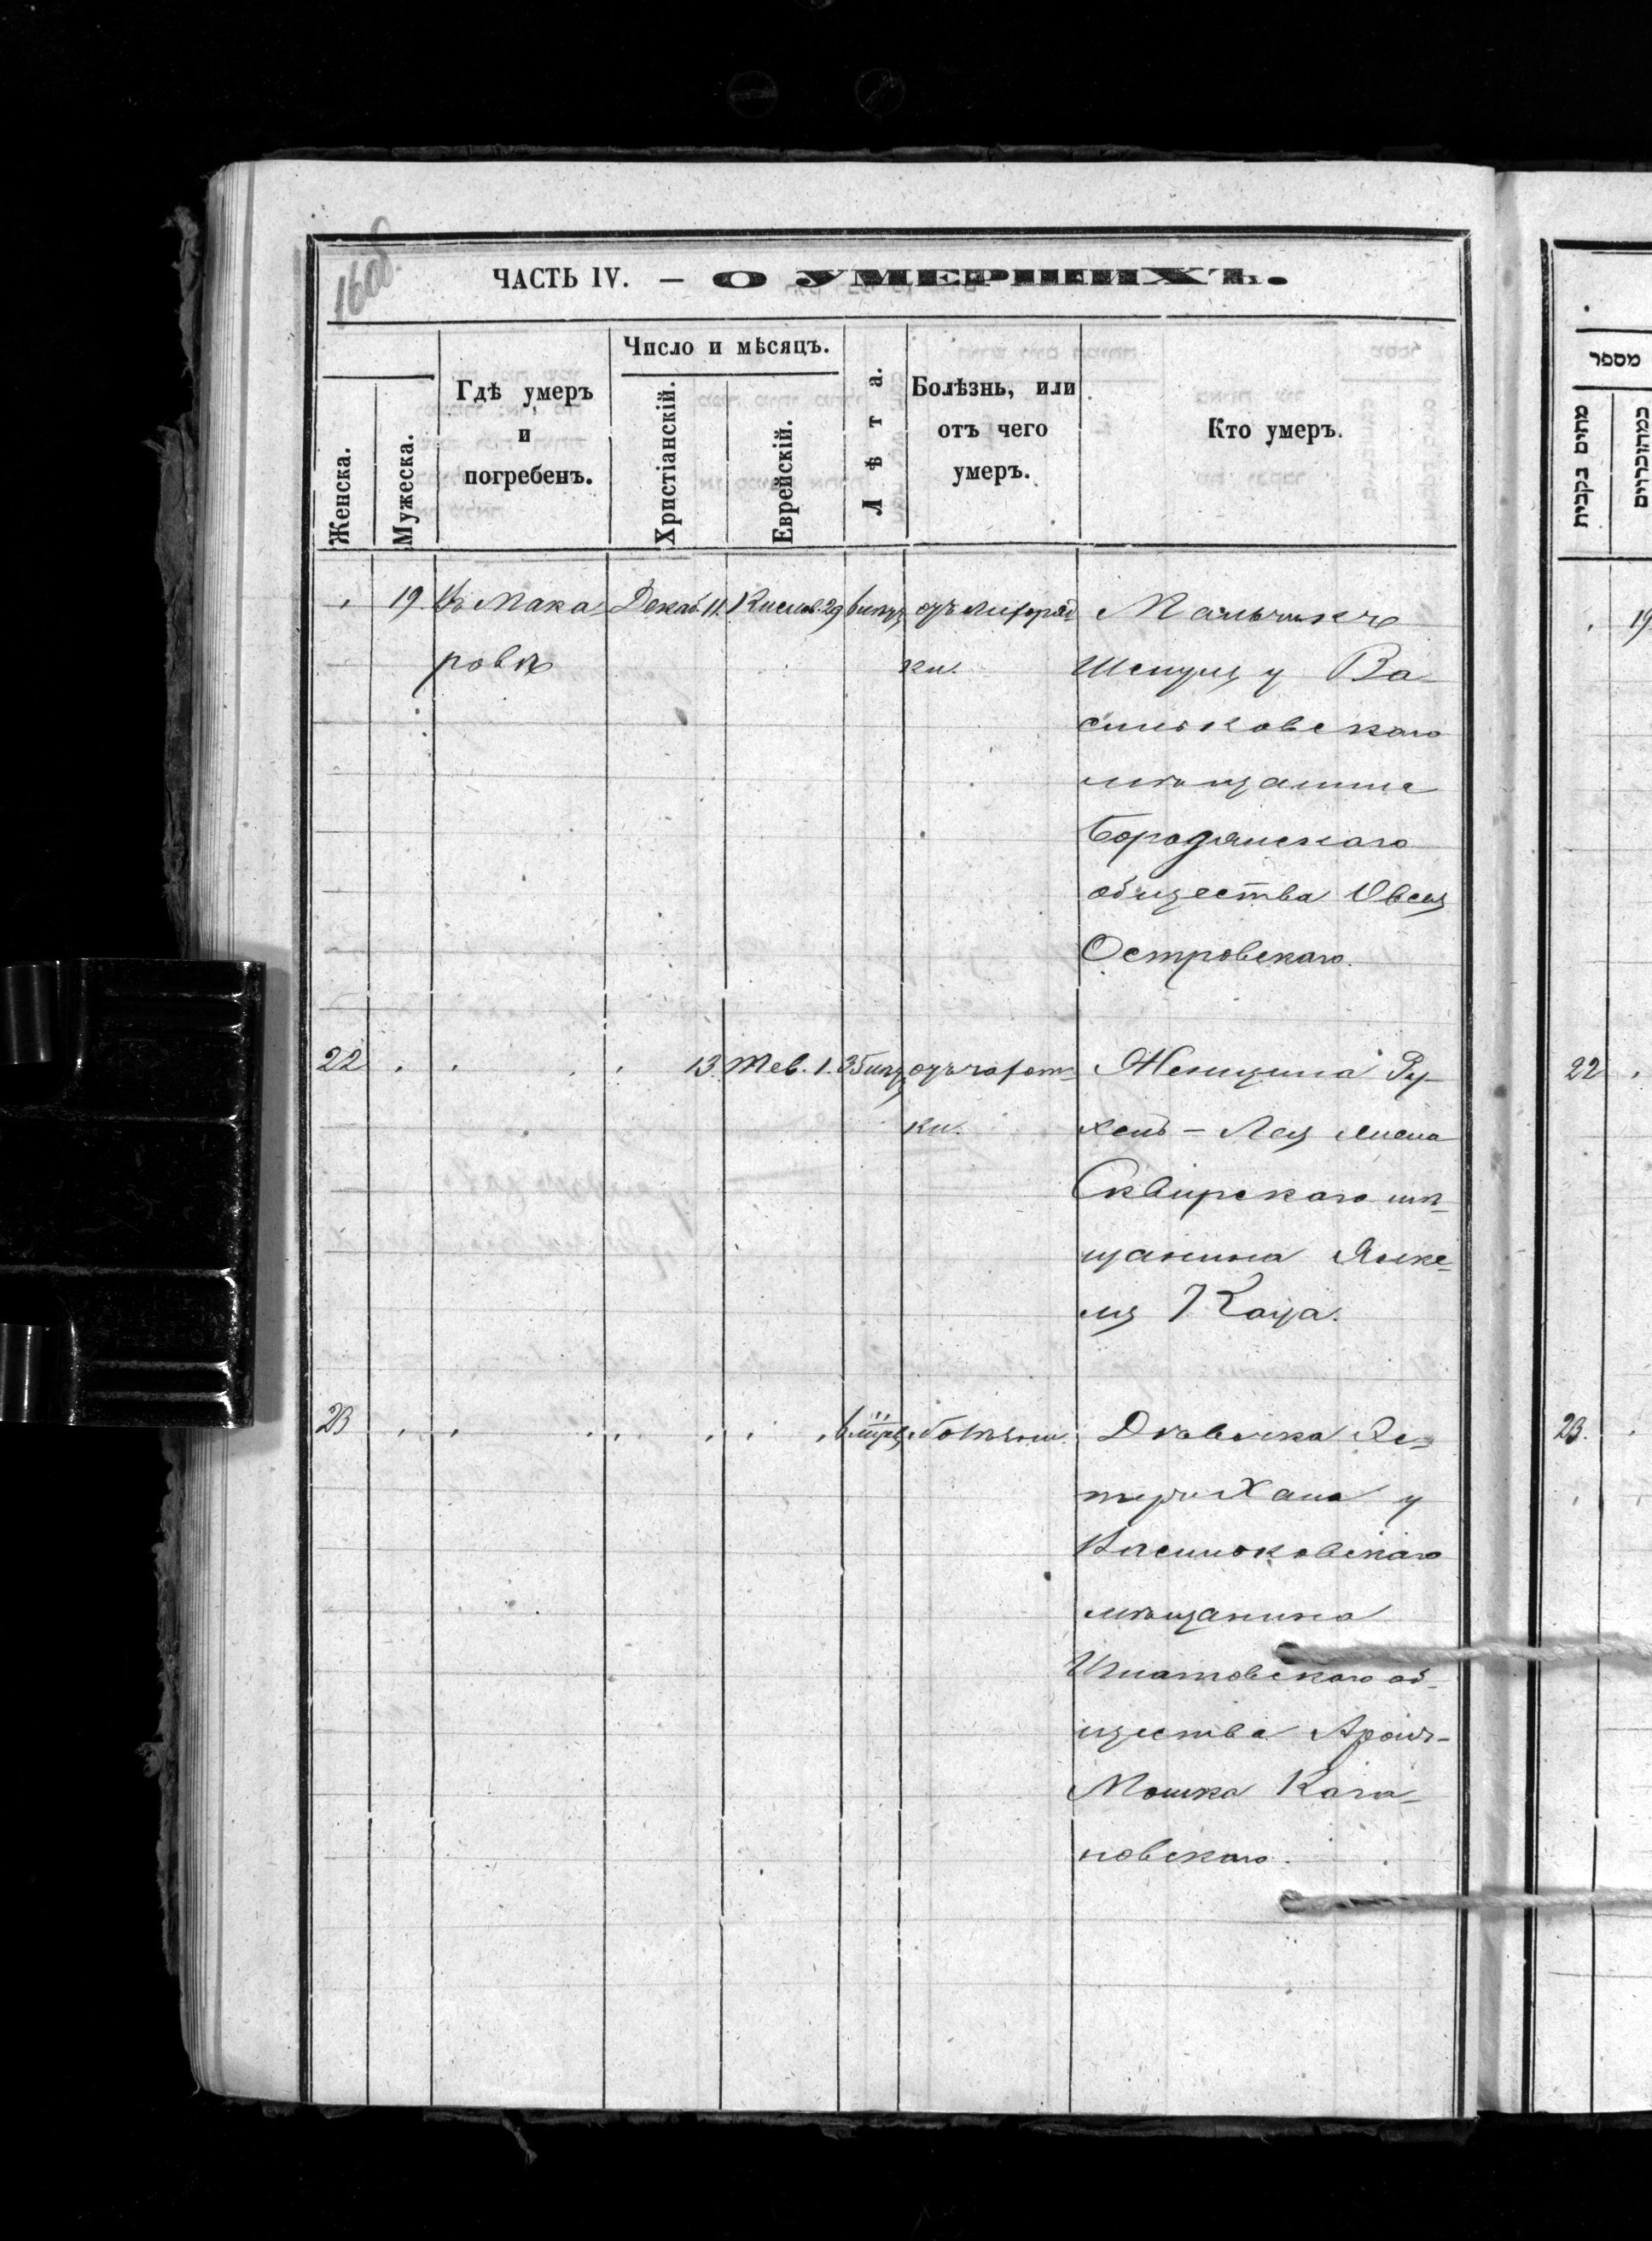 160об.
ЧАСТЬ IV. — О УМЕРШИХЪ.
Женска.
Мужеска.
Гдѣ умеръ
и
погребенъ.
Число и мѣсяцъ.
Христіанскій.
Еврейскій.
Лѣта.
Болѣзнь, или
отъ чего
умеръ.
Кто умеръ.
מספר
מתים נקבות
19 Въ Мака Декаб. 11. Кислов. 29 отъ лихорад Мальчикъ
ровѣ ки. у Ва-
сильковскаго
мѣщанина
Бородянскаго
общества Овсея
Островскаго.
22 13. Тев. 1. 35 отъ чахот- Женщина Ру-
ки. хель - Лея жена
Сквирскаго мѣ-
щанина Янке-
ля Каца.
23 Дѣвочка Эс-
теръ Хана у
Васильковскаго
мѣщанина
Игнатовскаго об-
щества Аронъ-
Мошка Кага-
новскаго.
19
22
23.